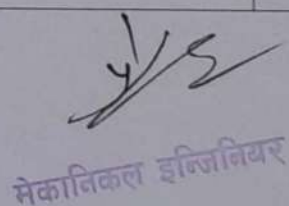 मेकानिकल इन्जिनियर